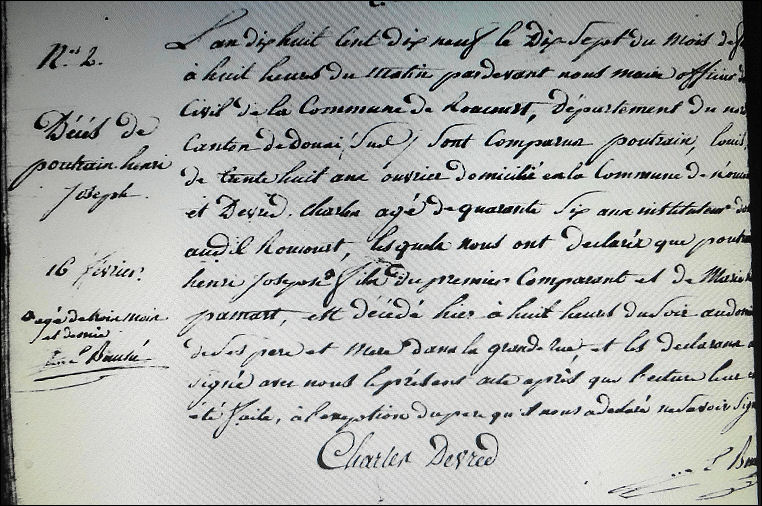 N.o 2.
Décès de
poutrain henri
Joseph.
16 février.
agé de trois mois
et demie
L'an dix huit Cent dix neuf le Dix Sept du mois de
à huit heures du Matin pardevant nous maire officier
Civil de la Commune de Roucourt, Département du nor
Canton de Douai (Sud) Sont Comparus poutrain, louis
de trente huit ans ouvrier domicilié en la Commune de
et Devred. Charles agé de quarante Six ans instituteur
audit Roucourt, lesquels nous ont declarés que poutra
henri Joseph, fils du premier Comparant et de Marie
pamart, est décédé hier à huit heures du Soir au
de Ses pere et Mere dans la grande rue et les declarans
signé avec nous le présent acte après que lecture leur
été faite, à l'exception du pere qu'il nous a declaré ne Savoir Sign
Charles Devred